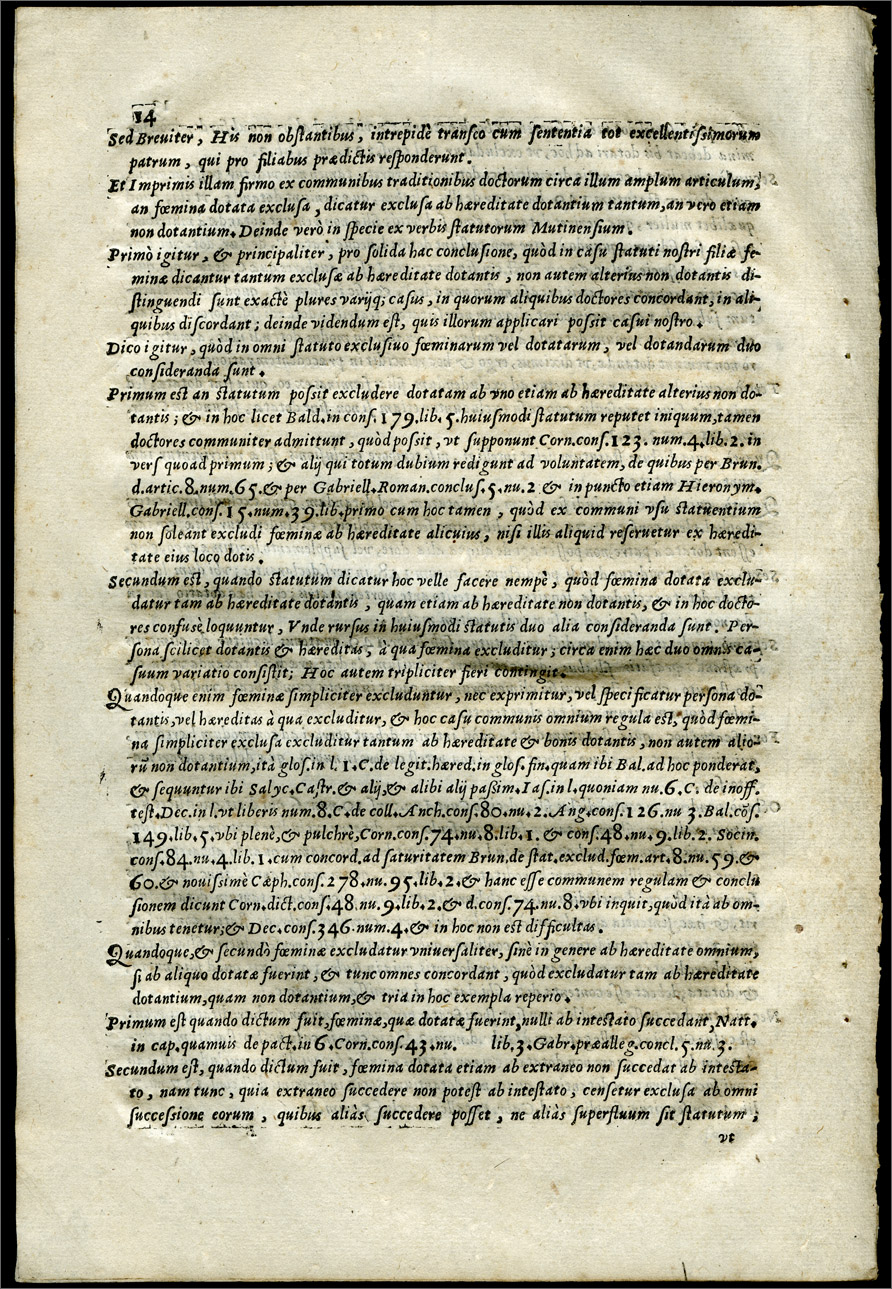 14
Sed Breuiter, His non obstantibus, intrepidè transeo cum sententia tot excellentissimorum
patrum, qui pro filiabus prædictis responderunt.
Et Imprimis illam firmo ex communibus traditionibus doctorum circa illum amplum articulum,
an fœmina dotata exclusa, dicatur exclusa ab hæreditate dotantium tantum, an vero etiam
non dotantium. Deinde verò in specie ex verbis statutorum Mutinensium.
Primò igitur, & principaliter, pro solida hac conclusione, quòd in casu statuti nostri filiæ fe-
minæ dicantur tantum exclusæ ab hæreditate dotantis, non autem alterius non dotantis di-
stinguendi sunt exactè plures varijq; casus, in quorum aliquibus doctores concordant, in ali-
quibus discordant; deinde videndum est, quis illorum applicari possit casui nostro.
Dico igitur, quòd in omni statuto exclusiuo fœminarum vel dotatarum, vel dotandarum duo
consideranda sunt.
Primum est an statutum possit excludere dotatam ab vno etiam ab hæreditate alterius non do-
tantis; & in hoc licet Bald. in cons. 179. lib. 5. huiusmodi statutum reputet iniquum, tamen
doctores communiter admittunt, quòd possit, vt supponunt Corn. cons. 123. num. 4. lib. 2. in
vers quoad primum; & alij qui totum dubium redigunt ad voluntatem, de quibus per Brun.
d. artic. 8. num. 65. & per Gabriell. Roman. conclus. 5. nu. 2 & in puncto etiam Hieronym.
Gabriell. cons. 15. num. 39. lib. primo cum hoc tamen, quòd ex communi vsu statuentium
non soleant excludi fœminæ ab hæreditate alicuius, nisi illis aliquid reseruetur ex hæredi-
tate eius loco dotis.
Secundum est, quando statutum dicatur hoc velle facere nempè, quòd fœmina dotata exclu-
datur tam ab hæreditate dotantis, quam etiam ab hæreditate non dotantis, & in hoc docto-
res confusè loquuntur, Vnde rursus in huiusmodi statutis duo alia consideranda sunt. Per-
sona scilicet dotantis & hæreditas, à qua fœmina excluditur; circa enim hæc duo omnis ca-
suum variatio consistit; Hoc autem tripliciter fieri contingit.
Quandoque enim fœminæ simpliciter excluduntur, nec exprimitur, vel specificatur persona do-
tantis, vel hæreditas à qua excluditur, & hoc casu communis omnium regula est, quòd fœmi-
na simpliciter exclusa excluditur tantum ab hæreditate & bonis dotantis, non autem alio-
rũ non dotantium, ità glos. in l. 1. C. de legit. hæred. in glos. fin. quam ibi Bal. ad hoc ponderat,
& sequuntur ibi Salyc. Castr. & alij, & alibi alij passim. Ias. in l. quoniam nu. 6. C. de inoff.
test. Dec. in l. vt liberis num. 8. C. de coll. Anch. cons. 80. nu. 2. Ang. cons. 126. nu 3. Bal. cõs.
149. lib. 5. vbi plenè, & pulchrè, Corn. cons. 74. nu. 8. lib. 1. & cons. 48. nu. 9. lib. 2. Socin.
cons. 84. nu. 4. lib. 1. cum concord. ad saturitatem Brun. de stat. exclud. fœm. art. 8. nu. 59. &
60. & nouissimè Cæph. cons. 278. nu. 95. lib. 2. & hanc esse communem regulam & conclu
sionem dicunt Corn. dict. cons. 48. nu. 9. lib. 2. & d. cons. 74. nu. 8. vbi inquit, quòd ità ab om-
nibus tenetur; & Dec. cons. 346. num. 4. & in hoc non est difficultas.
Quandoque, & secundò fœminæ excludatur vniuersaliter, sinè in genere ab hæreditate omnium,
si ab aliquo dotatæ fuerint, & tunc omnes concordant, quòd excludatur tam ab hæreditate
dotantium, quam non dotantium, & tria in hoc exempla reperio.
Primum est quando dictum fuit, fœminæ, quæ dotatæ fuerint, nulli ab intestato succedant, Natt.
in cap. quamuis de pact. in 6. Corn. cons. 43. nu. lib. 3. Gabr. præalleg. concl. 5. nu. 3.
Secundum est, quando dictum fuit, fœmina dotata etiam ab extraneo non succedat ab intesta-
to, nam tunc, quia extraneo succedere non potest ab intestato, censetur exclusa ab omni
successione eorum, quibus aliàs succedere posset, ne aliàs superfluum sit statutum;
vt